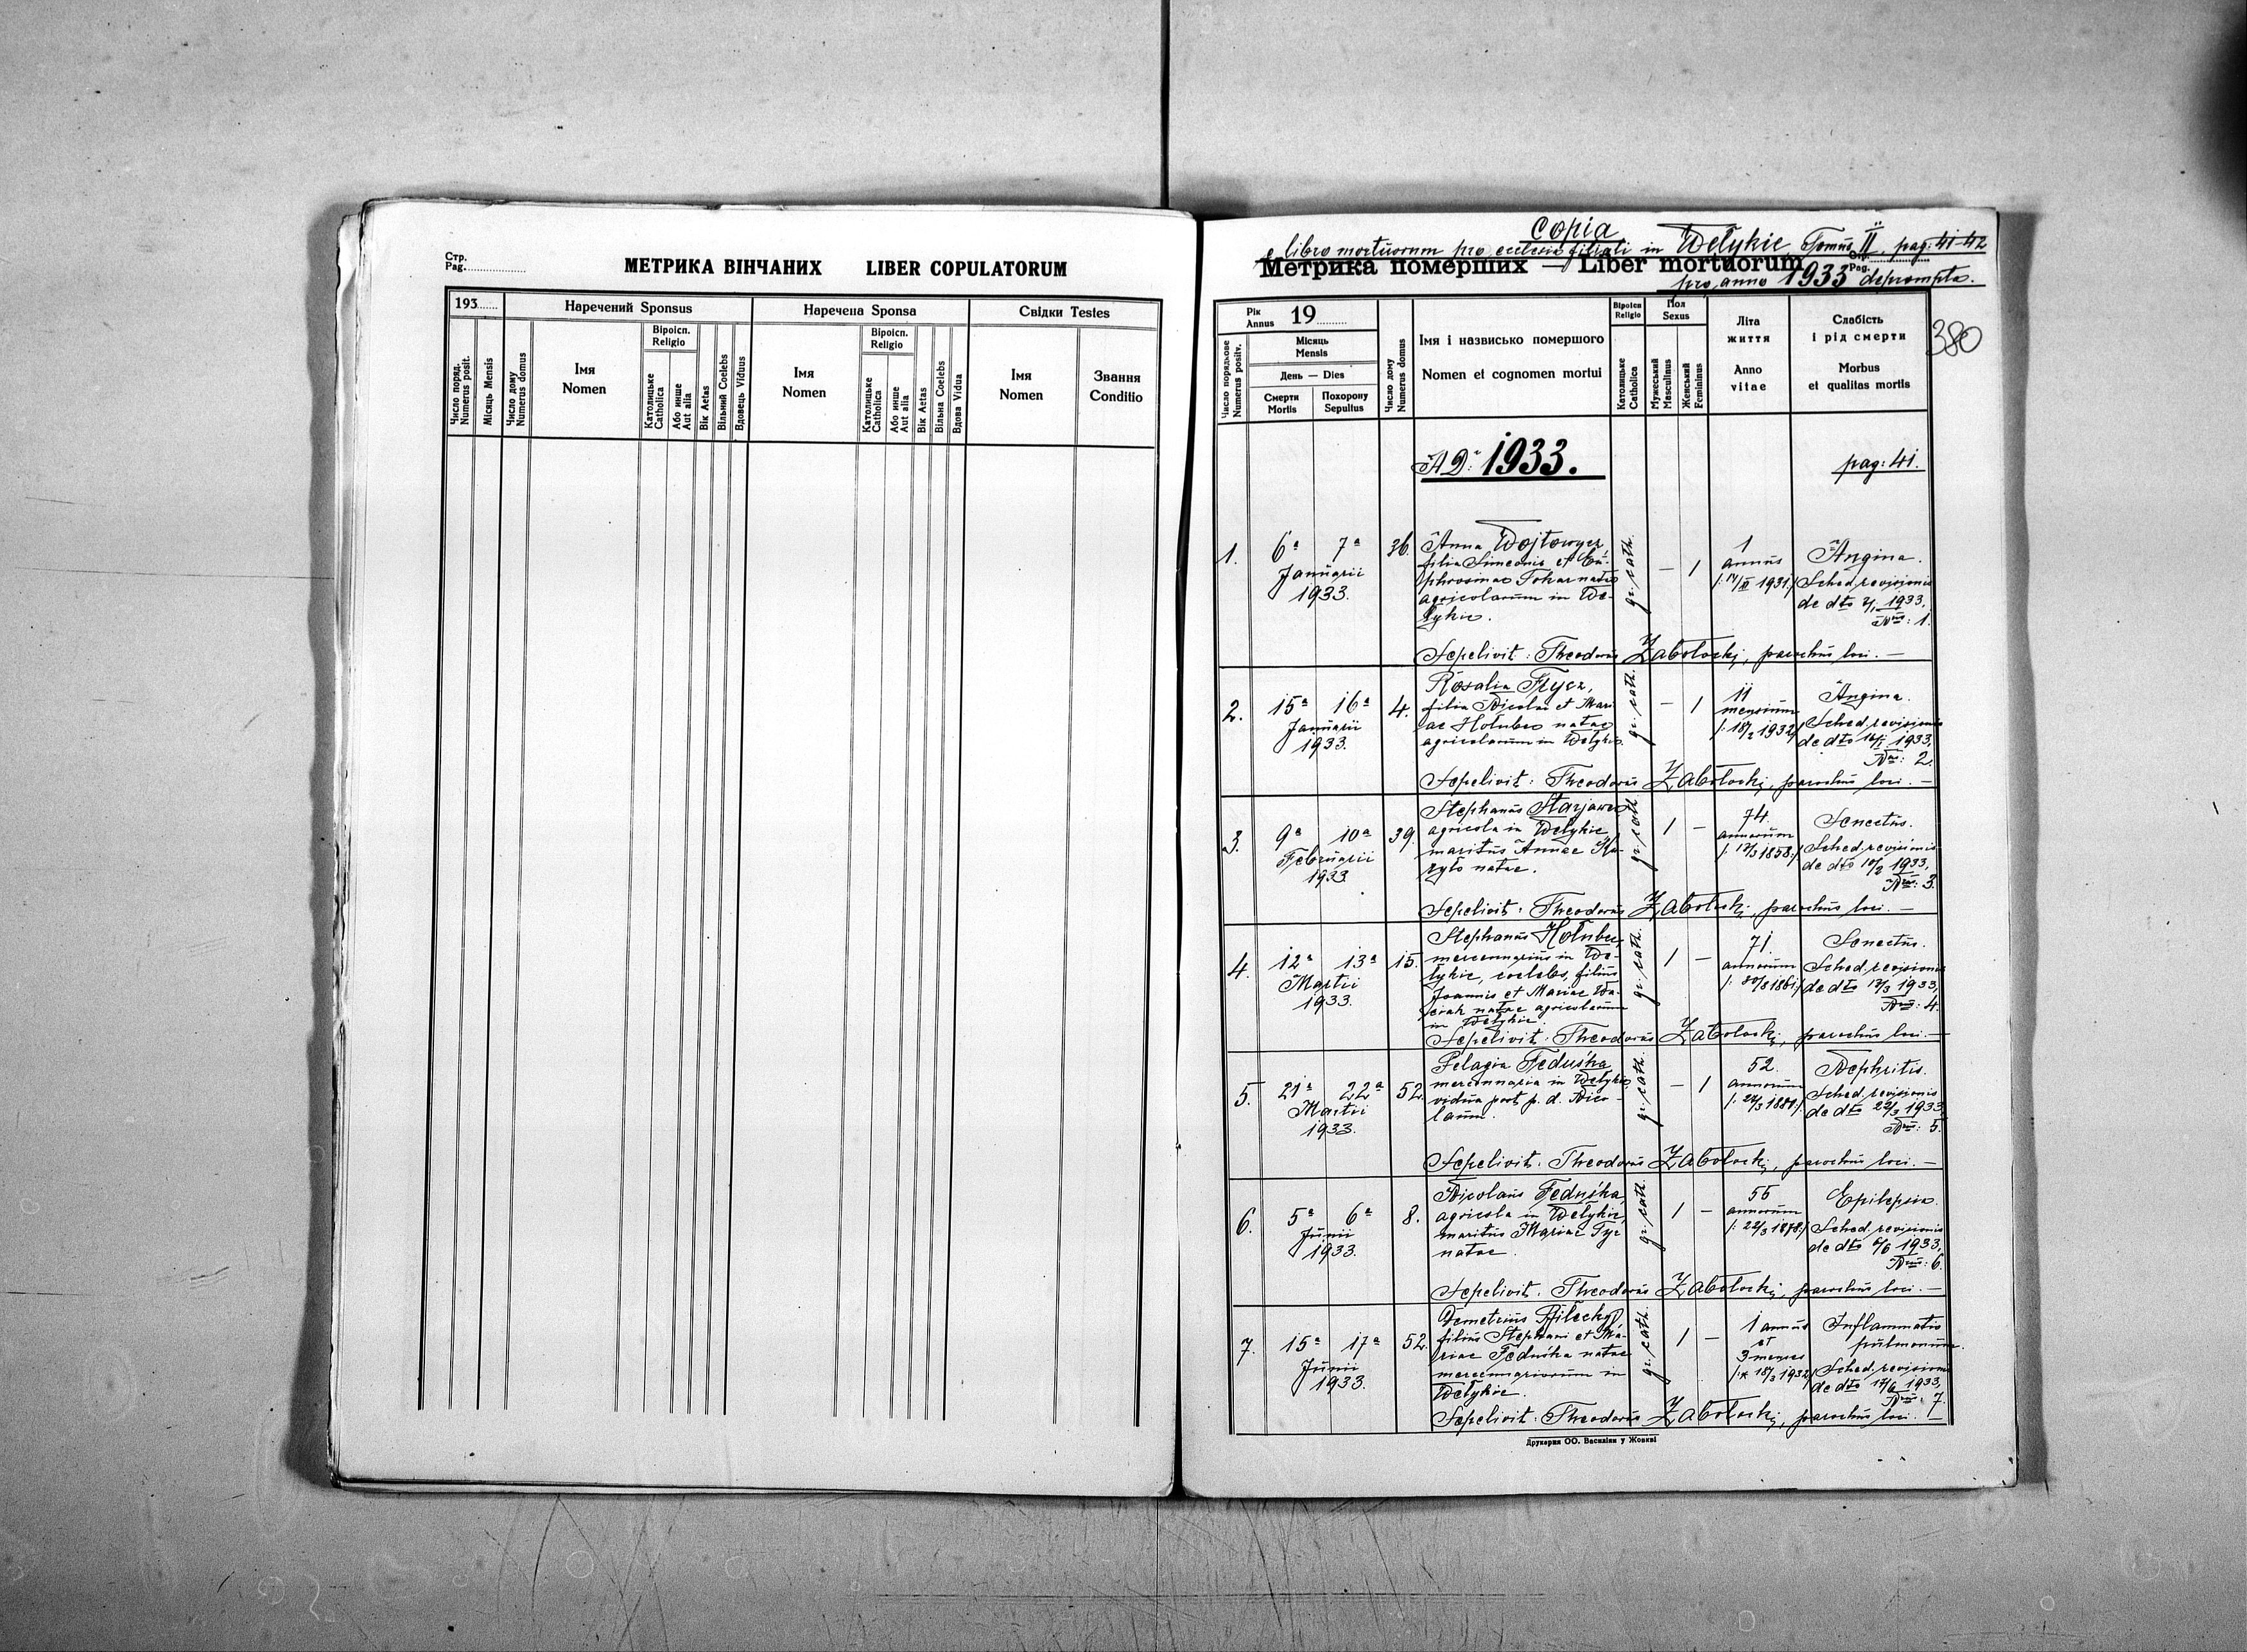 Стр.
Pag.
МЕТРИКА ВІНЧАНИХ LIBER COPULATORUM
193
Наречений Sponsus
Наречена Sponsa
Свідки Testes
Число поряд.
Numerus posit.
Місяць Mensis
Число дому
Numerus domus
Імя
Nomen
Віроісп.
Religio
Католицьке
Catholica
Або инше
Aut alia
Вік Aetas
Вільний Coelebs
Вдовець Viduus
Імя
Nomen
Віроісп.
Religio
Католицьке
Catholica
Або инше
Aut alia
Вік Aetas
Вільна Coelebs
Вдова Vidua
Імя
Nomen
Звання
Conditio
Copia
e libro mortuorum pro ecclesia filiali in Wełykie, Tomus II, pag: 41-42
Метрика померших — Liber mortuorum
Стр.
Pag.
pro anno 1933 deprompta.
380
Рік
Annus 19
Число порядкове
Numerus positv.
Місяць
Mensis
День — Dies
Смерти
Mortis
Похорону
Sepultus
Число дому
Numerus domus
Імя і назвисько помершого
Nomen et cognomen mortui
Віроісп
Religio
Католицьке
Catholica
Пол
Sexus
Мужеський
Masculinus
Женський
Femininus
Літа
життя
Anno
vitae
Слабість
і рід смерти
Morbus
et qualitas mortis
A D: 1933.
pag: 41.
1.
6a 7a
Januarii
1933.
36.
Anna Wojtowycz,
filia Simeonis et Eu-
phrosinae Tokar natae
agricolarum in We-
łykie.
gr. cath.
— 1
1
annus
Angina.
Sched. revisionis
1933.
Nrus: 1.
Sepelivit: Theodorus Zabołockij, parochus loci. —
2.
15a 16a
Januarii
1933.
4.
Rosalia Hycz,
filia Nicolai et Mari
ae Hołubec natae
agricolarum in Wełykie.
gr. cath.
— 1
11
mensium
/: 18/2 1932 :/
Angina.
Sched. revisionis
de dto 16/1 1933,
Nrus: 2.
Sepelivit: Theodorus Zabołockij, parochus loci. —
3.
9a 10a
Februarii
1933.
39.
Stephanus Starjawec
agricola in Wełykie
maritus Annae
natae.
gr. cath.
1 —
74
annorum
1858 :/
Senectus.
Sched. revisionis
de dto 10/2 1933,
Nrus: 3.
Sepelivit: Theodorus Zabołockij, parochus loci. —
4.
12a 13a
Martii
1933.
15.
Stephanus Hołubec,
mercennarius in We-
łykie, coelebs, filius
Joannis et Mariae
natae agricolarum
in Wełykie.
gr. cath.
1 —
71.
annorum
1861 :/
Senectus.
Sched. revisionis
de dto 13/3 1933,
Nrus: 4.
Sepelivit: Theodorus Zabołockij, parochus loci. —
5.
21a 22a
Martii
1933.
52.
Pelagia Feduśka
mercennaria in Wełykie,
vidua post p. d. Nico-
laum.
gr. cath.
— 1
52.
annorum
Nephritis.
Sched. revisionis
de dto 22/3 1933,
Nrus: 5.
Sepelivit: Theodorus Zabołockij, parochus loci. —
6.
5a 6a
Junii
1933.
8.
Nicolaus Feduśka
agricola in Wełykie,
maritus Mariae
natae.
gr. cath.
1 —
55
annorum
/: 22/3 1878 :/
Epilepsia.
Sched. revisionis
de dto 6/6 1933,
Nrus: 6.
Sepelivit: Theodorus Zabołockij, parochus loci. —
7.
15a 17a
Junii
1933.
52.
Demetrius Pileckyj,
filius Stephani et Ma-
riae Feduśka natae
mercennariorum in
Wełykie.
gr. cath.
1 —
1 annus
et
3 menses
/:* 18/3 1932 :/
Inflammatio
pulmonum.
Sched. revisionis
de dto 17/6 1933,
Nrus: 7.
Sepelivit: Theodorus Zabołockij, parochus loci. —
Друкарня ОО. Василіян у Жовкві